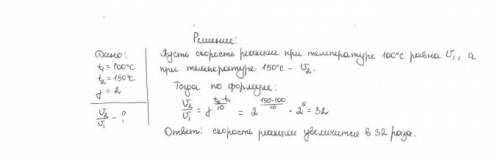 Решение:
Дано:
t₁ = 100°C
t₂ = 150°C
γ = 2
V₂/V₁ - ?
Пусть скорость реакции при температуре 100°C равна V₁, а
при температуре 150°C - V₂.
Тогда по формуле:
V₂/V₁ = γ^((t₂-t₁)/10) = 2^((150-100)/10) = 2⁵ = 32
Ответ: скорость реакции увеличится в 32 раза.